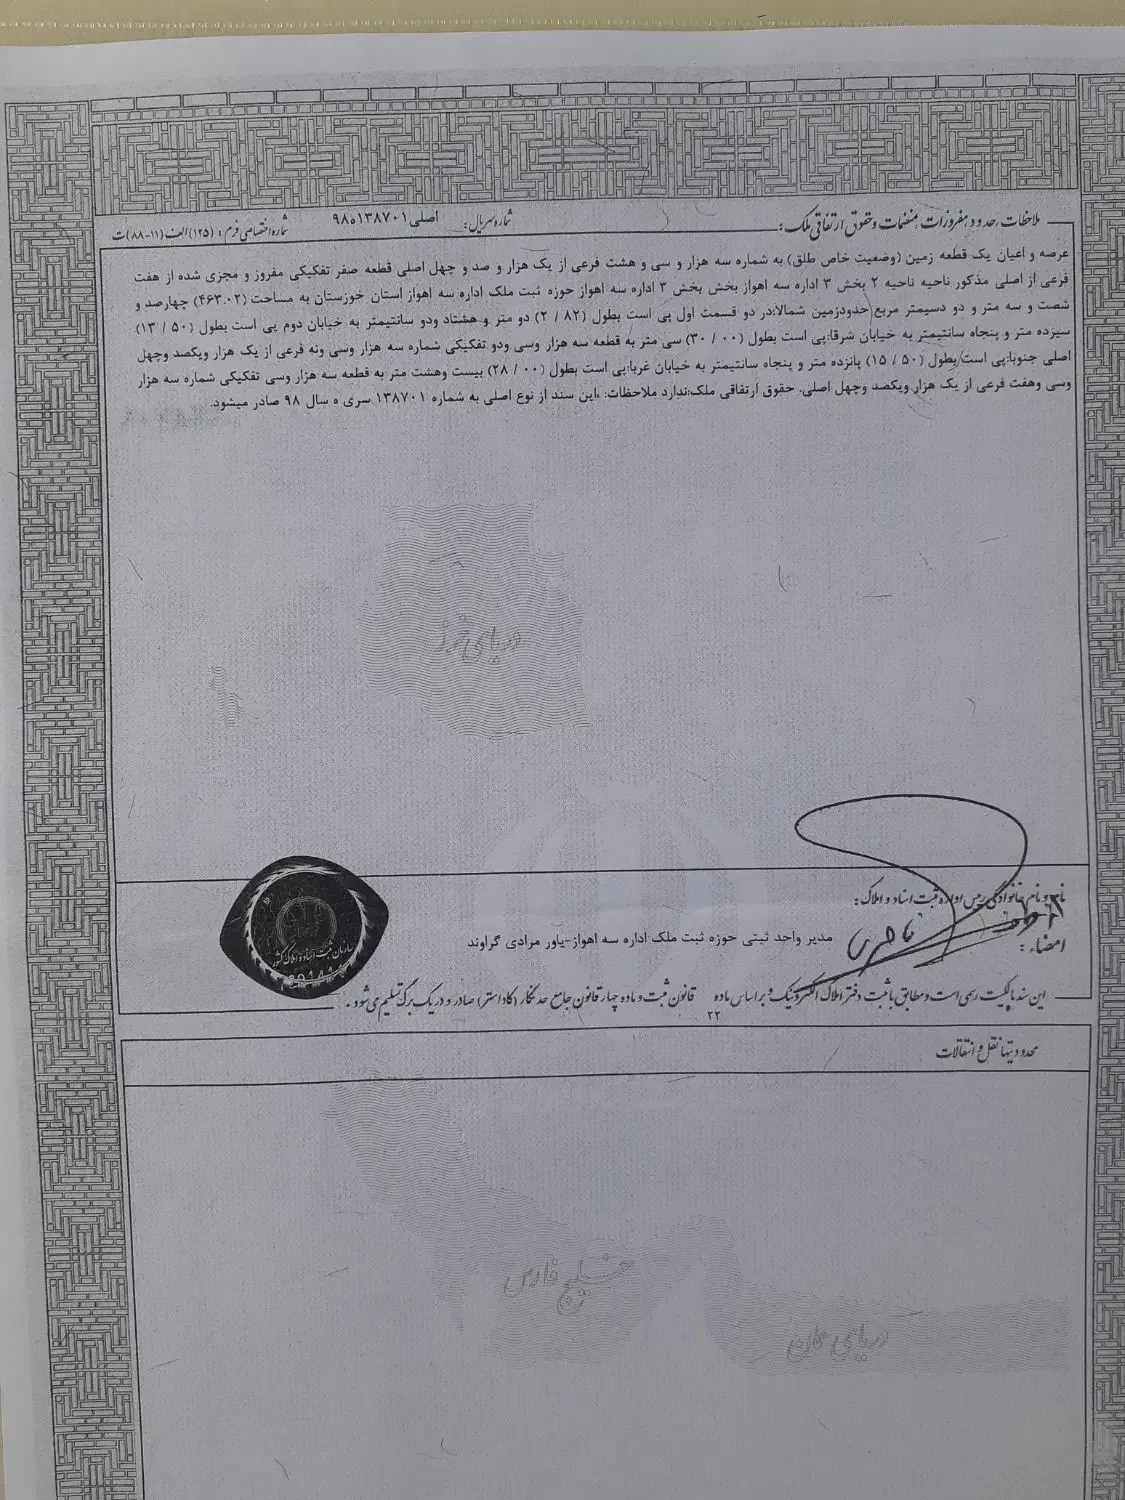 ملاحظات ،حدود ،مفروزات ،منضمات وحقوق ارتفاقی ملک :
شماره سریال: اصلی ۱۳۸۷۰۱ ۵ ۹۸
شماره اختصاصی فرم: (۱۲۵) الف (۱۱-۸۸) ت
عرصه و اعیان یک قطعه زمین (وضعیت خاص طلق) به شماره سه هزار و سی و هشت فرعی از یک هزار و صد و چهل اصلی قطعه صفر تفکیکی مفروز و مجزی شده از هفت
فرعی از اصلی مذکور ناحیه ناحیه ۲ بخش ۳ اداره سه اهواز بخش بخش ۳ اداره سه اهواز حوزه ثبت ملک اداره سه اهواز استان خوزستان به مساحت (۴۶۳.۰۲) چهارصد و
شصت و سه متر و دو دسیمتر مربع|حدودزمین شمالا:در دو قسمت اول پی است بطول (۸۲ / ۲) دو متر و هشتاد ودو سانتیمتر به خیابان دوم پی است بطول (۵۰ / ۱۳)
سیزده متر و پنجاه سانتیمتر به خیابان شرقا:پی است بطول (۰۰ / ۳۰) سی متر به قطعه سه هزار وسی ودو تفکیکی شماره سه هزار وسی ونه فرعی از یک هزار ویکصد وچهل
اصلی جنوبا:پی است بطول (۵۰ / ۱۵) پانزده متر و پنجاه سانتیمتر به خیابان غربا:پی است بطول (۰۰ / ۲۸) بیست وهشت متر به قطعه سه هزار وسی تفکیکی شماره سه هزار
وسی وهفت فرعی از یک هزار ویکصد وچهل اصلی. حقوق ارتفاقی ملک:ندارد ملاحظات: ،این سند از نوع اصلی به شماره ۱۳۸۷۰۱ سری ه سال ۹۸ صادر میشود.
دریای خزر
نام و نام خانوادگی رئیس اداره ثبت اسناد و املاک :
مدیر واحد ثبتی حوزه ثبت ملک اداره سه اهواز-یاور مرادی گراوند
امضاء :
سازمان ثبت اسناد و املاک کشور
این سند مالکیت رسمی است و مطابق با ثبت دفتر املاک الکترونیک و بر اساس ماده ۲۲ قانون ثبت و ماده چهار قانون جامع حدنگار (کاداستر) صادر و در یک برگ تسلیم می شود .
محدودیتها نقل و انتقالات
خلیج فارس
دریای عمان